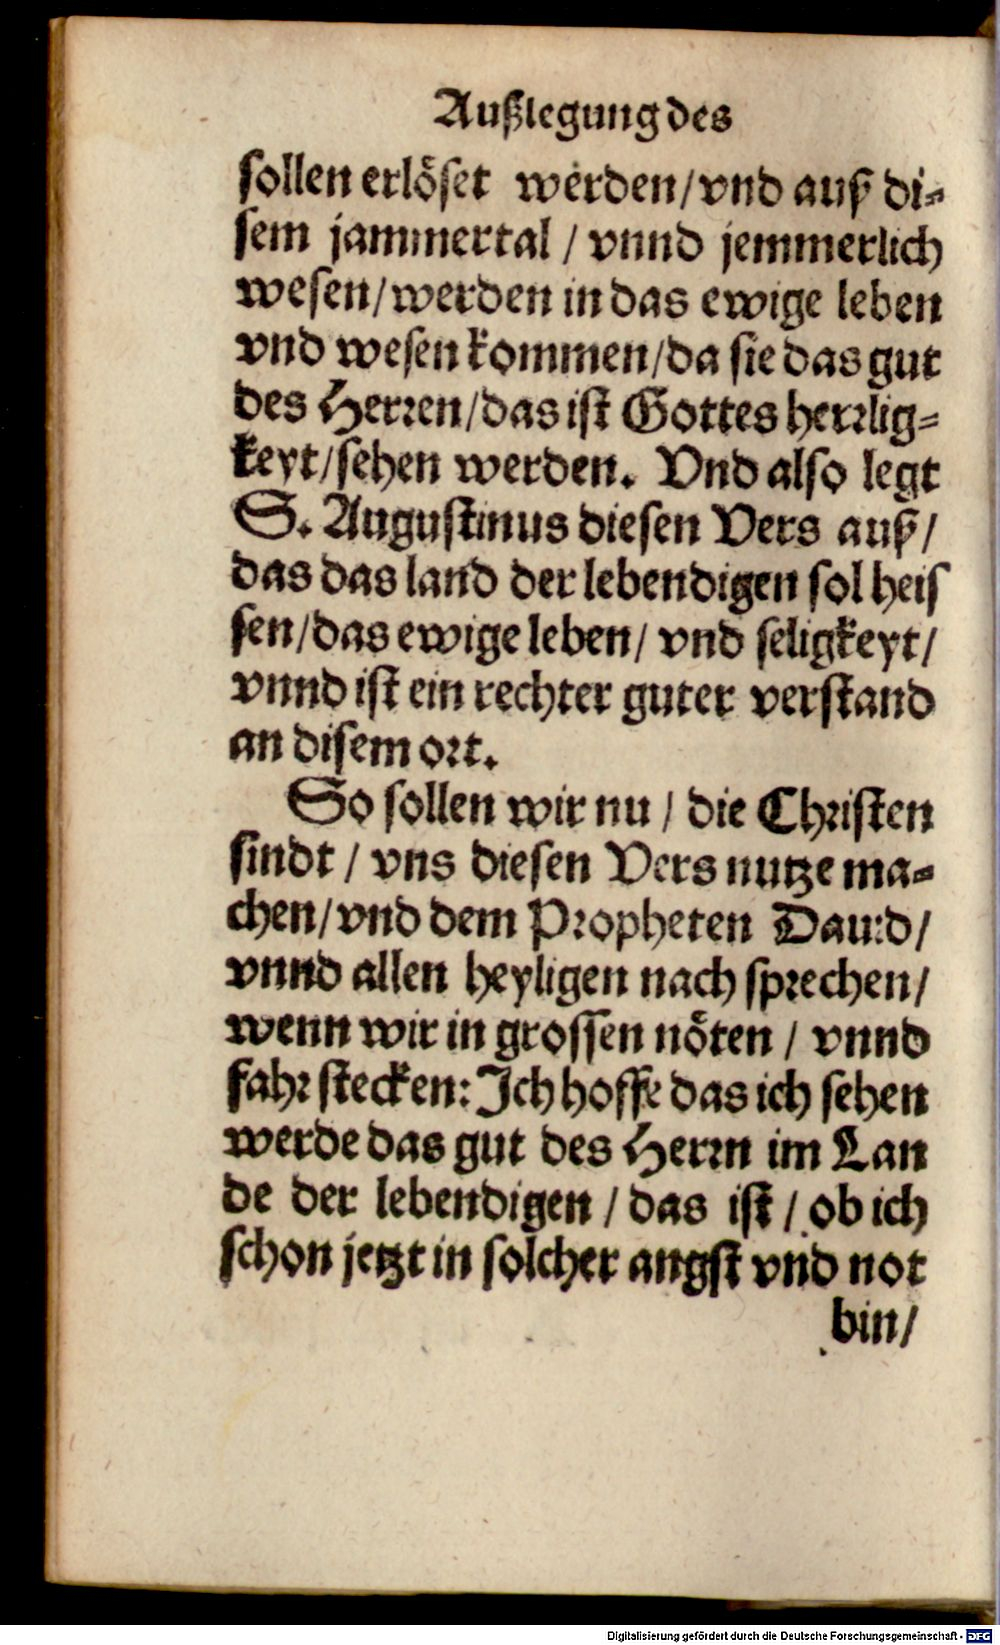 Außlegung des
sollen erlöset werden/vnd auß di=
sem jammertal / vnnd jemmerlich
wesen/werden in das ewige leben
vnd wesen kommen/da sie das gut
des Herren/das ist Gottes herrlig=
keyt/sehen werden. Vnd also legt
S. Augustinus diesen Vers auß/
das das land der lebendigen sol heis
sen/das ewige leben/ vnd seligkeyt/
vnnd ist ein rechter guter verstand
an disem ort.
So sollen wir nu / die Christen
sindt / vns diesen Vers nutze ma=
chen/vnd dem Propheten Dauid/
vnnd allen heyligen nach sprechen/
wenn wir in grossen nöten / vnnd
fahr stecken: Ich hoffe das ich sehen
werde das gut des Herrn im Lan
de der lebendigen / das ist / ob ich
schon jetzt in solcher angst vnd not
bin/
Digitalisierung gefördert durch die Deutsche Forschungsgemeinschaft - DFG